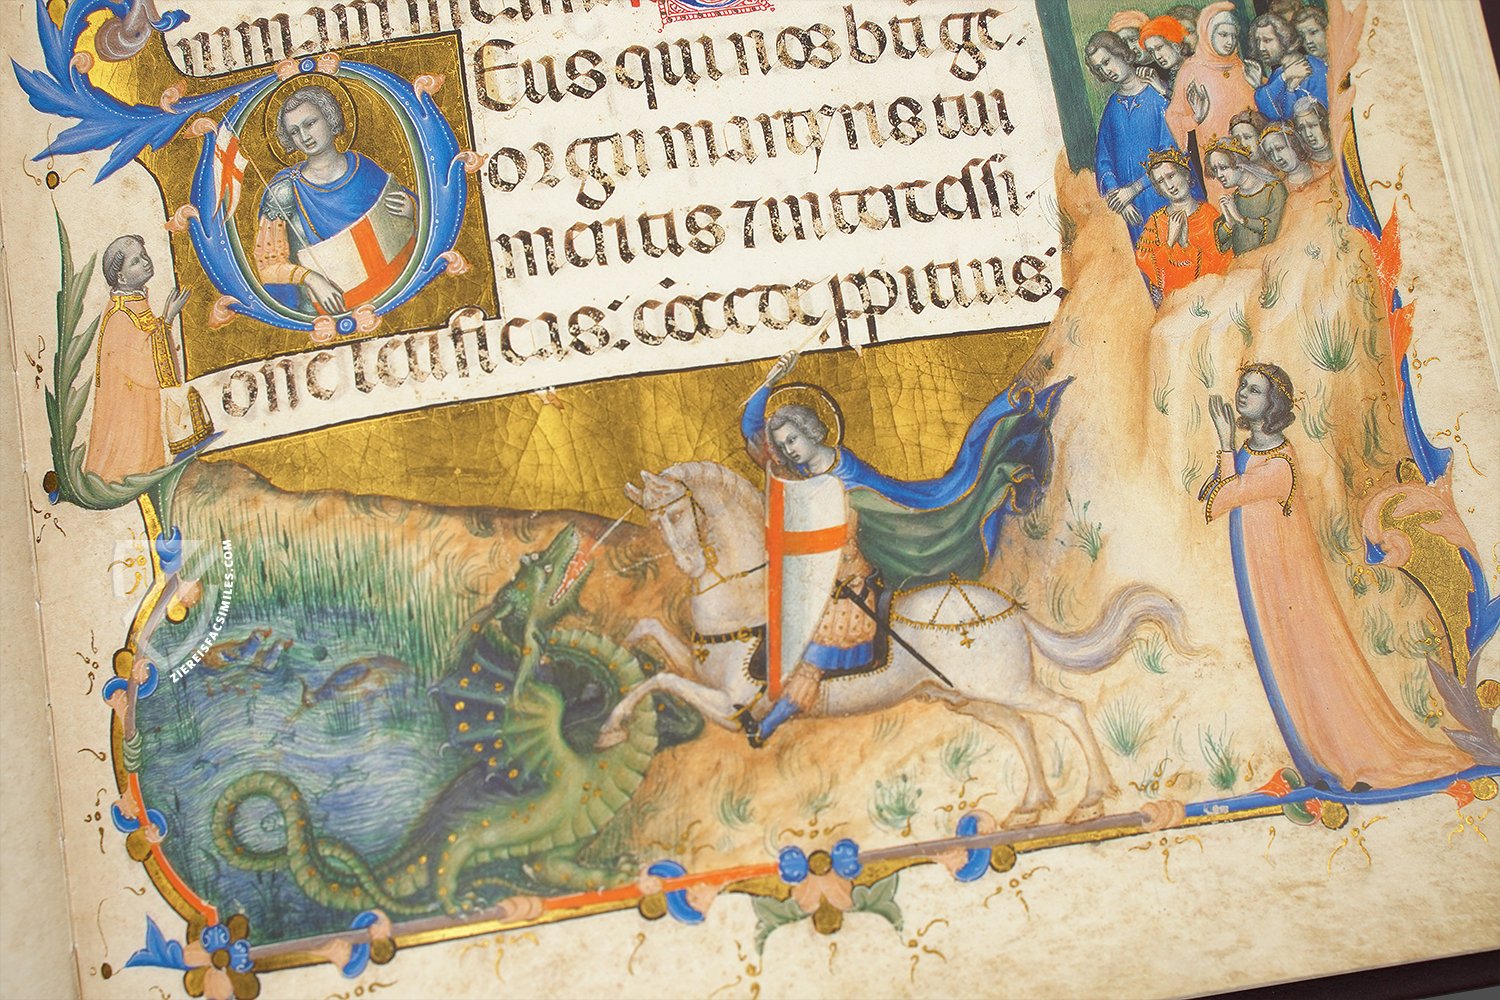 DEus qui nos bti ge
orgii martyris tui
meritis ⁊ intercessi
one letificas: cōcede ꝓpitius:
ZIEREISFACSIMILES.COM